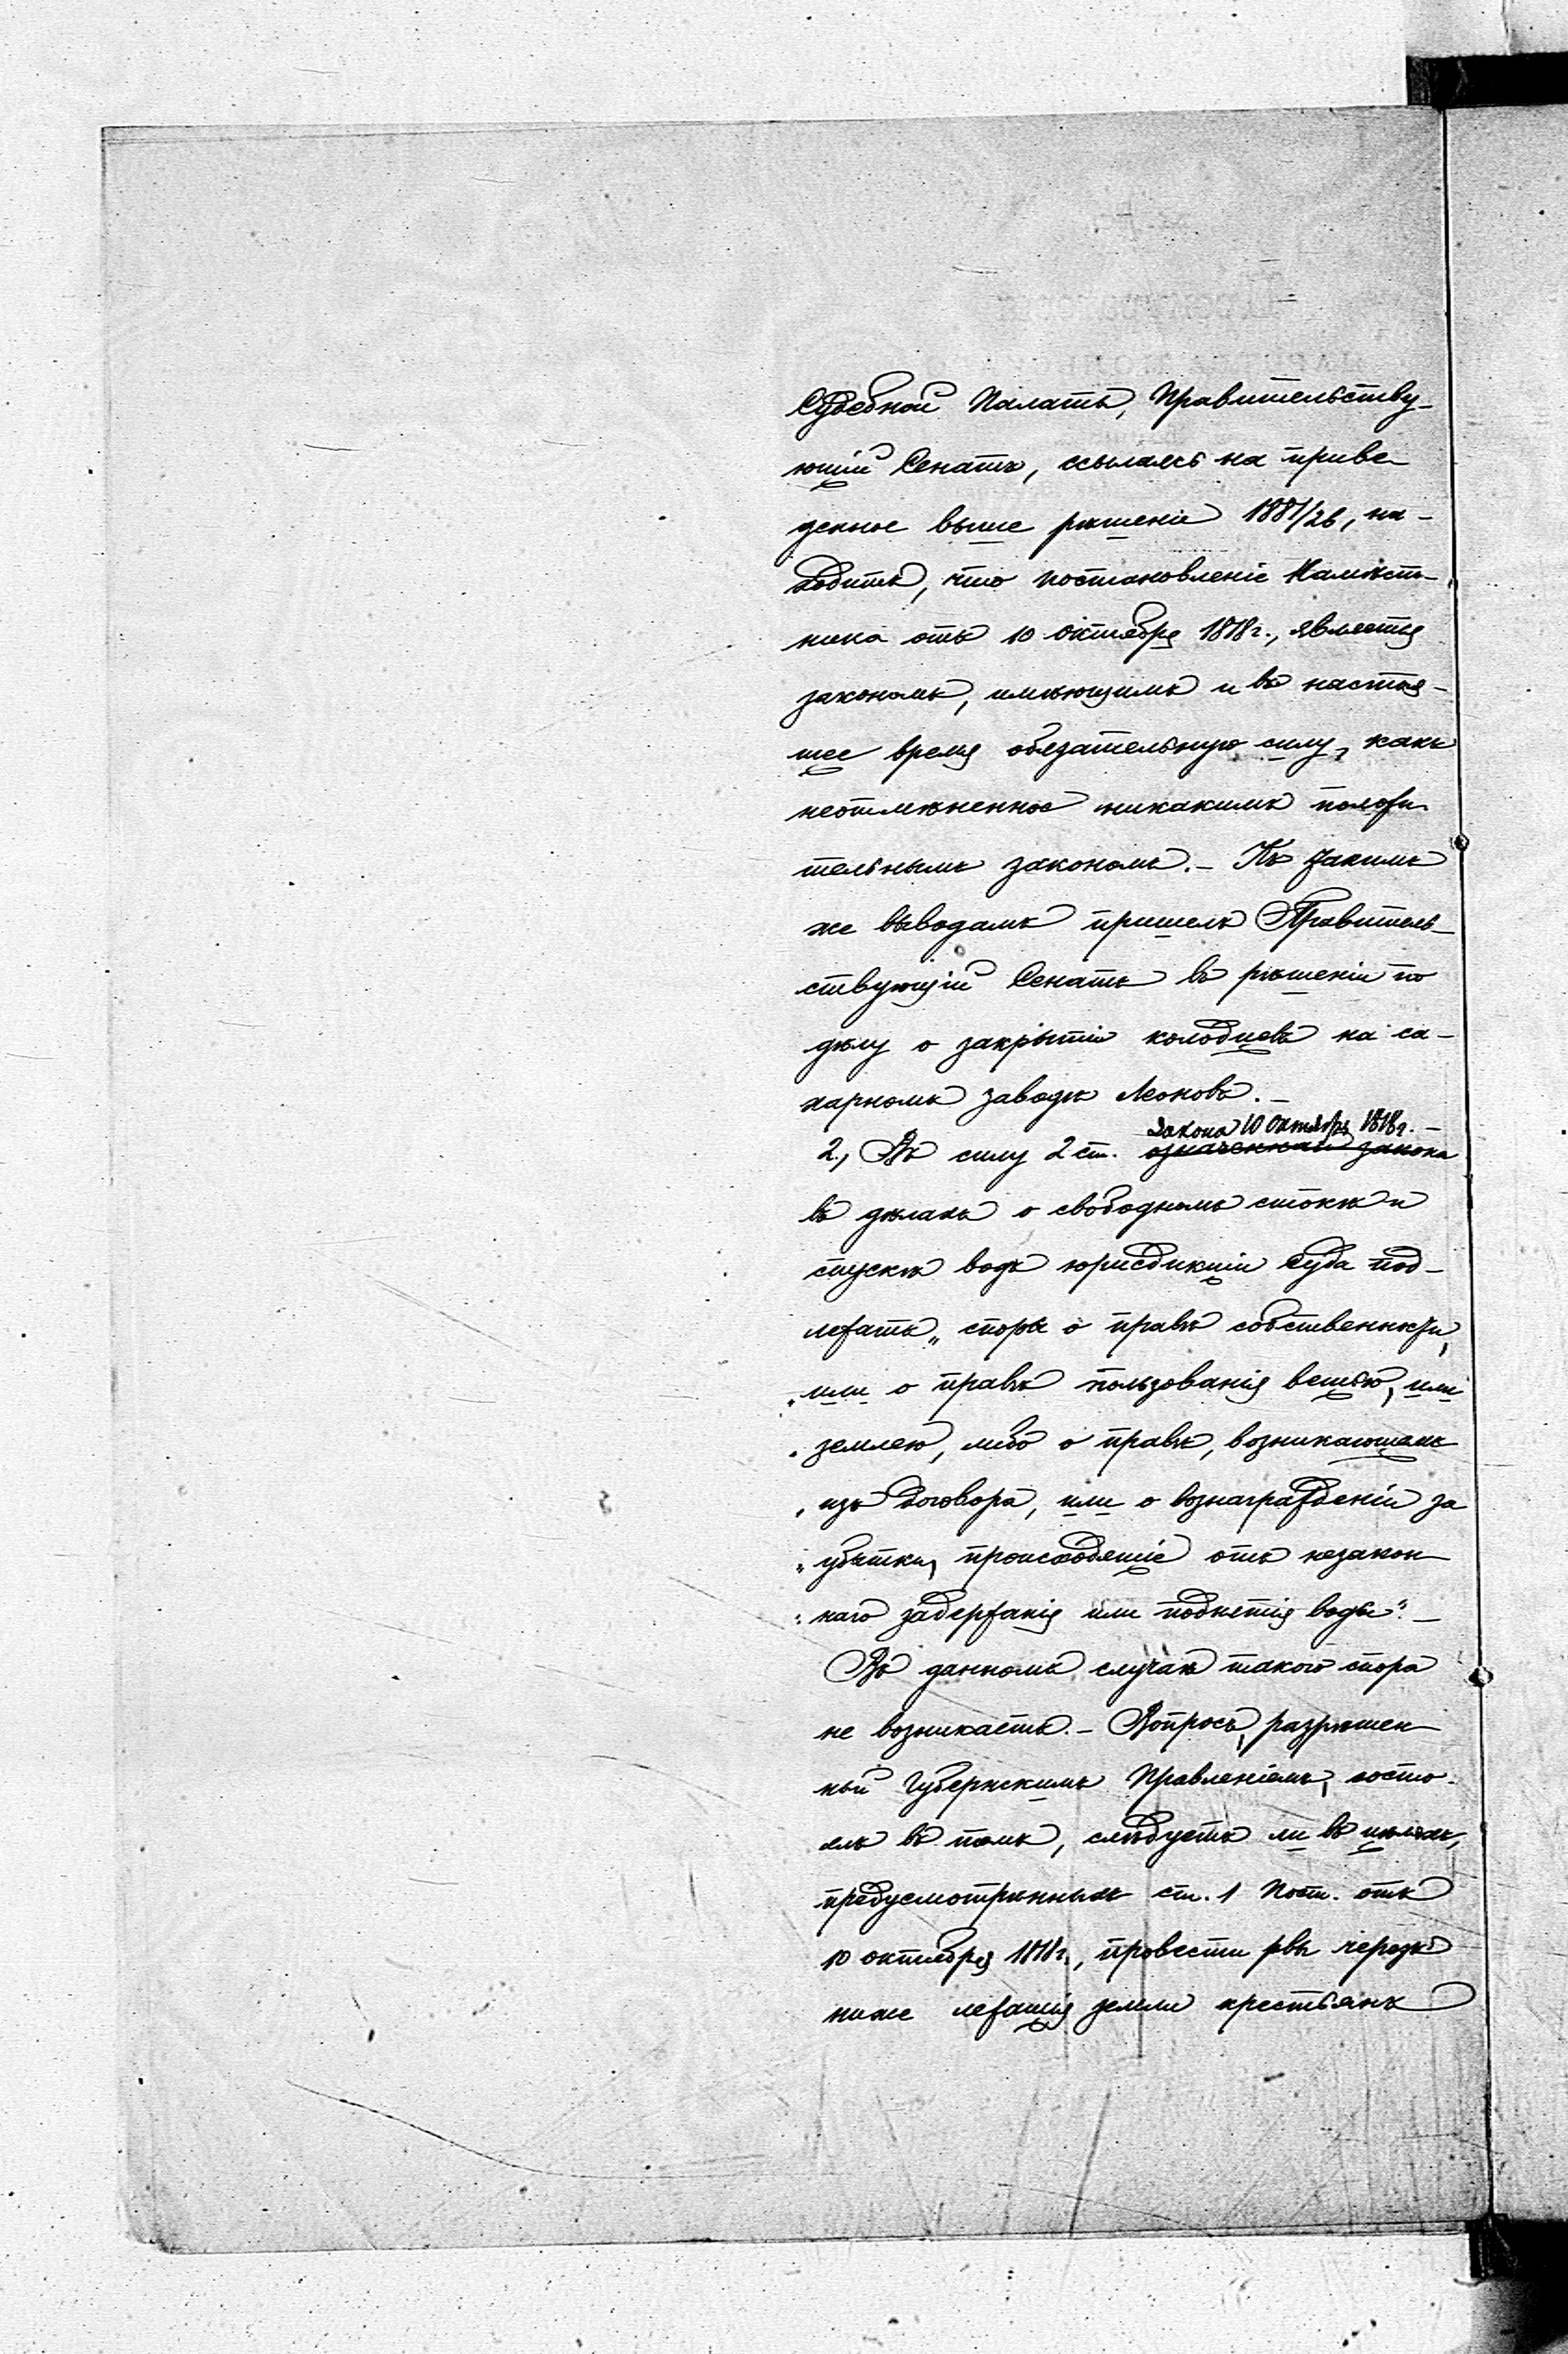 Судебной Палаты, Правительству-
ющій Сенатъ, ссылаясь на приве-
денное выше рѣшеніе 1881/26, на-
ходитъ, что постановленіе Намѣст-
ника отъ 10 октября 1818 г., является
закономъ, имѣющимъ и въ настоя-
щее время обязательную силу, какъ
неотмѣненное никакимъ положи-
тельнымъ закономъ. – Къ такимъ
же выводамъ пришелъ Правитель-
ствующій Сенатъ въ рѣшеніи по
дѣлу о закрытіи колодцевъ на са-
харномъ заводѣ Леоновъ. –
закона 10 Октября 1818 г. –
2., Въ силу 2 ст. означеннаго закона
въ дѣлахъ о свободномъ стокѣ и
спускѣ водъ юрисдикціи Суда под-
лежатъ „споры о правѣ собственности,
„или о правѣ пользованія вещью, или
„землею, либо о правѣ, возникающемъ
„изъ договора, или о вознагражденіи за
„убытки, происходящіе отъ незакон-
„наго задержанія или поднятія воды“. –
Въ данномъ случаѣ такого спора
не возникаетъ. – Вопросъ, разрѣшен-
ный Губернскимъ Правленіемъ, состо-
ялъ въ томъ, слѣдуетъ ли въ цѣляхъ,
предусмотрѣнныхъ ст. 1 Пост. отъ
10 октября 1818 г., провести рвы черезъ
ниже лежащія земли крестьянъ